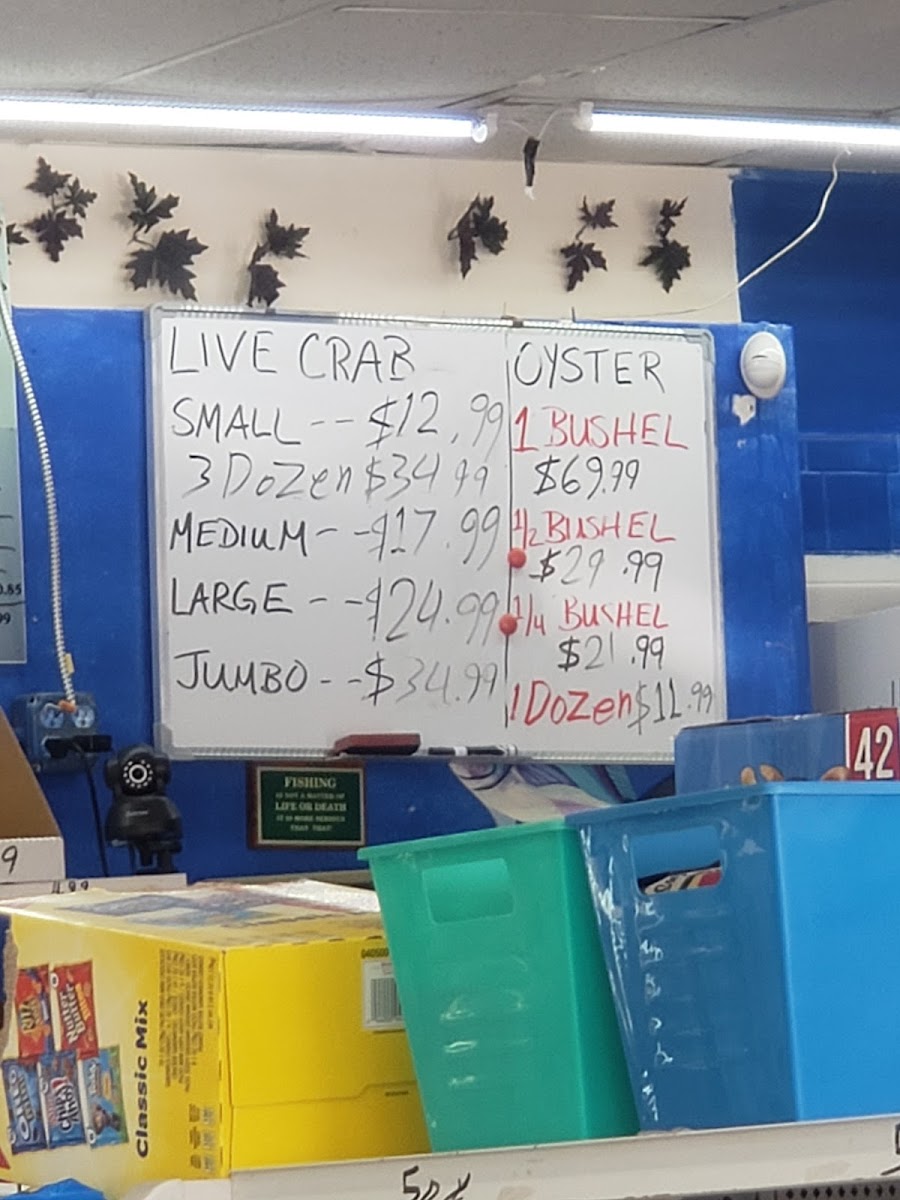 LIVE CRAB
SMALL -- $12.99
3 Dozen $34.99
MEDIUM - -$17.99
LARGE - -$24.99
JUMBO - -$34.99
OYSTER
1 BUSHEL
$69.99
1/2 BUSHEL
$29.99
1/4 BUSHEL
$21.99
1 Dozen $11.99
FISHING
IS NOT A MATTER OF
LIFE OR DEATH
IT IS MORE SERIOUS
THAN THAT!
42
Classic Mix
Nutter Butter